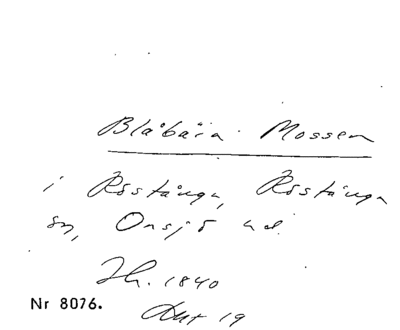 Blåbära Mossen
i Röstånga, Röstånga
sn, Onsjö hd.
Jh. 1840
Nr 8076.
Akt 19